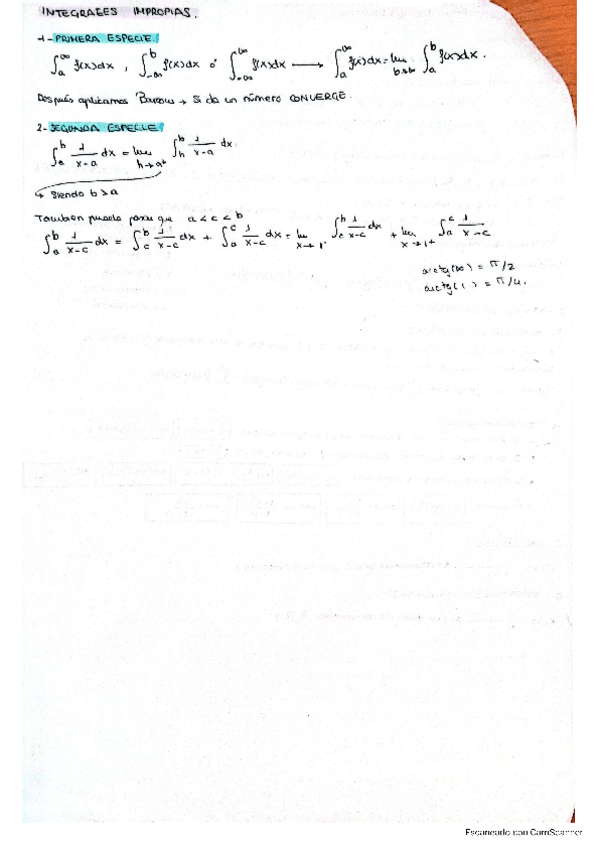 INTEGRALES IMPROPIAS.
-1- PRIMERA ESPECIE!
∫_a^∞ f(x)dx , ∫_{-∞}^b f(x)dx ó ∫_{-∞}^∞ f(x)dx ⟶ ∫_a^∞ f(x)dx = lim_{b→∞} ∫_a^b f(x)dx.
Después aplicamos Barrow → Si da un número CONVERGE.
2- SEGUNDA ESPECIE!
∫_a^b 1/(x-a) dx = lim_{h→a+} ∫_h^b 1/(x-a) dx.
↳ Siendo b > a
También puede que a < c < b
∫_a^b 1/(x-c) dx = ∫_c^b 1/(x-c) dx + ∫_a^c 1/(x-c) dx = lim_{x→1-} ∫_c^b 1/(x-c) dx + lim_{x→1+} ∫_a^c 1/(x-c)
arctg(∞) = π/2
arctg(1) = π/4.
Escaneado con CamScanner